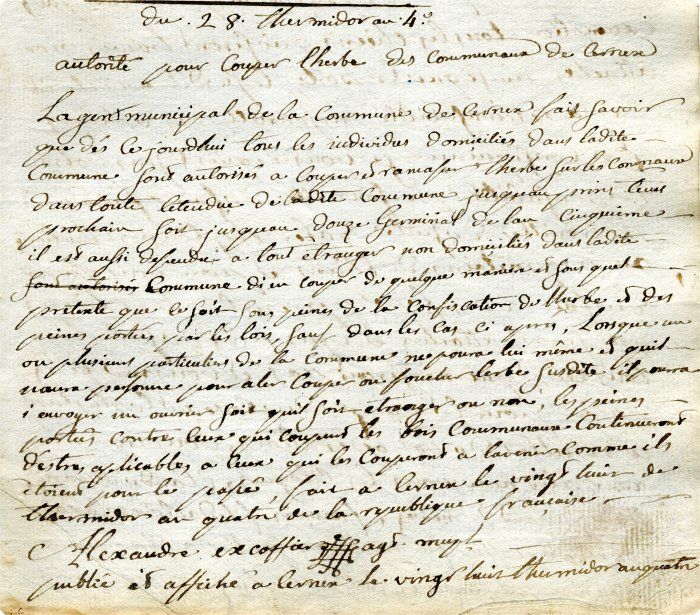 du 28. thermidor an 4.º
autorité pour Couper lherbe des Communaux de Cernex
Lagent municipal de la Commune de Cernex fait savoir
que dés ce jourdhui tous les individus domiciliés dans ladite
Commune sont autorisés a Couper et ramasser lherbe sur les Communaux
dans toute letendue de ladite Commune jusquau prins tems
prochain soit jusquau douze Germinal de lan Cinquième
il est aussi defendu a tout etranger non domiciliés dans ladite
sont autoriser Commune dien couper de quelque manière et sous quel
pretexte que ce soit sous peines de la Confiscation de lherbe et des
peines portés par les lois, sauf dans les cas ci apres, Lorsque un
ou plusieurs particuliers de la Commune ne poura lui même et quil
naura personne pour aler Couper ou faucher lerbe susdite il poura
i envoyer un ouvrier soit quil soit etranger ou non, les peines
portés contre ceux qui coupent les bois Communaux Continueront
destres aplicables a ceux qui les Couperont a lavenir Comme ils
etoient pour le passé fait a Cernex le vingt huit de
thermidor an quatre de la republique française
C Alexandre excoffier agt mupl
publié et affiché a Cernex le vingt huit thermidor an quatre